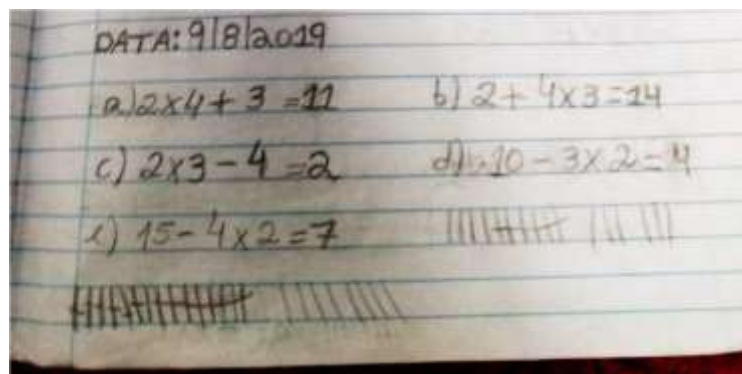 DATA: 9|8|2019
a) 2x4 + 3 = 11 b) 2 + 4x3 = 14
c) 2x3 - 4 = 2 d) 10 - 3x2 = 4
e) 15 - 4x2 = 7